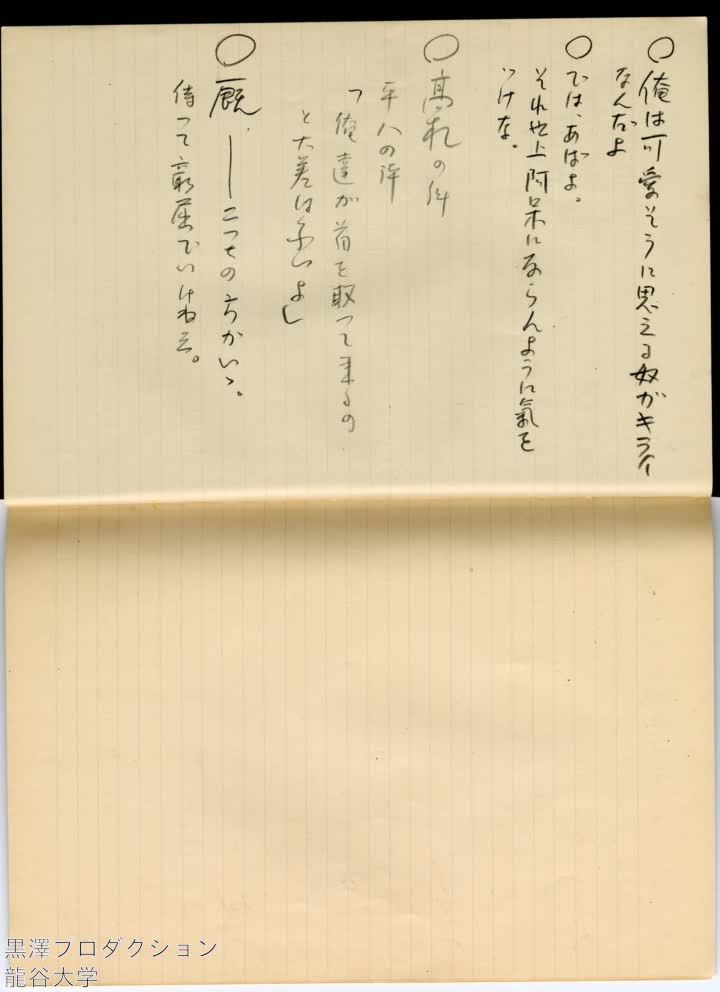 ○俺は可愛そうに思える奴がキライ
なんだよ
○では、あばよ。
それ以上阿呆にならんように氣を
つけな。
○高札の件
平八の件
「俺達が首を取って来るの
と大差はないよ」
○厩 ── こっちの方がいゝ。
侍って窮屈でいけねえ。
黒澤プロダクション
龍谷大学